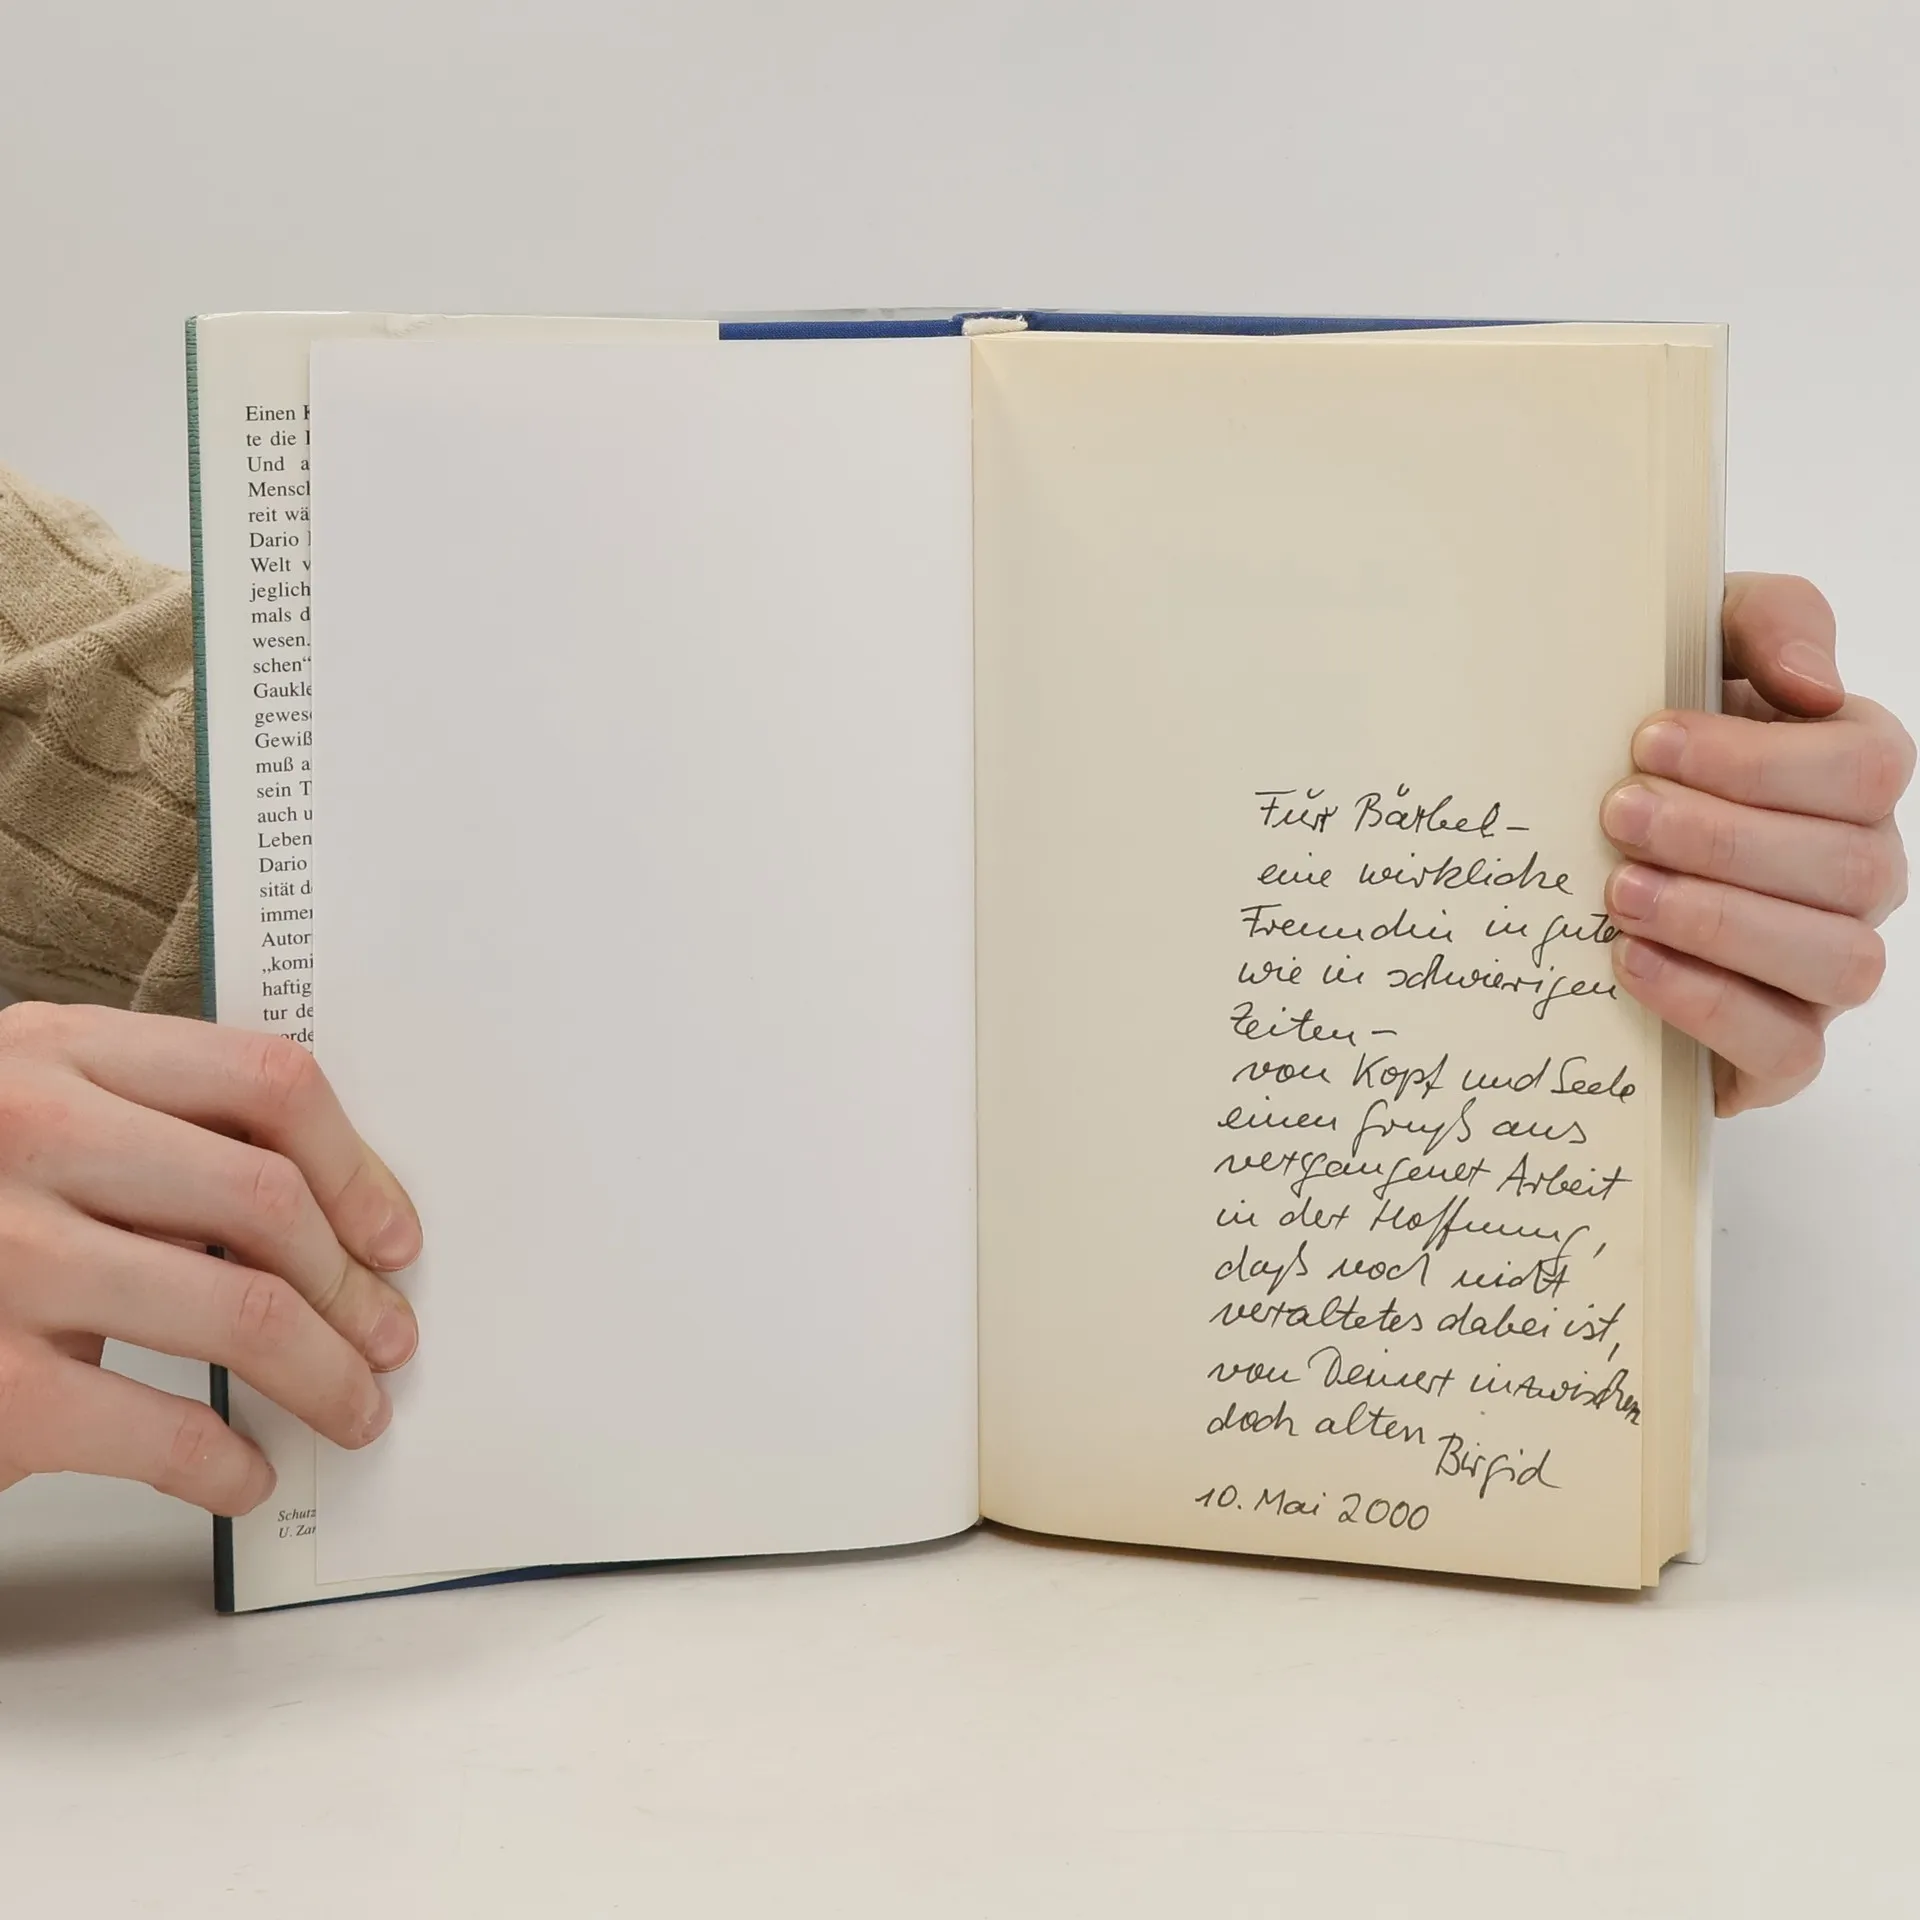 Einen
te die
Und a
Mensch
reit wä
Dario
Welt v
jeglich
mals d
wesen.
schen“
Gaukle
gewese
Gewiß
muß a
sein T
auch u
Leben
Dario
sität d
immer
Autor
„komi
haftig
tur de
orde
Schutz
U. Zar
Für Bärbel –
eine wirkliche
Freundin in guten
wie in schwierigen
Zeiten –
von Kopf und Seele
einen Gruß aus
vergangener Arbeit
in der Hoffnung,
daß noch nicht
veraltetes dabei ist,
von Deiner inzwischen
doch alten
Birgid
10. Mai 2000